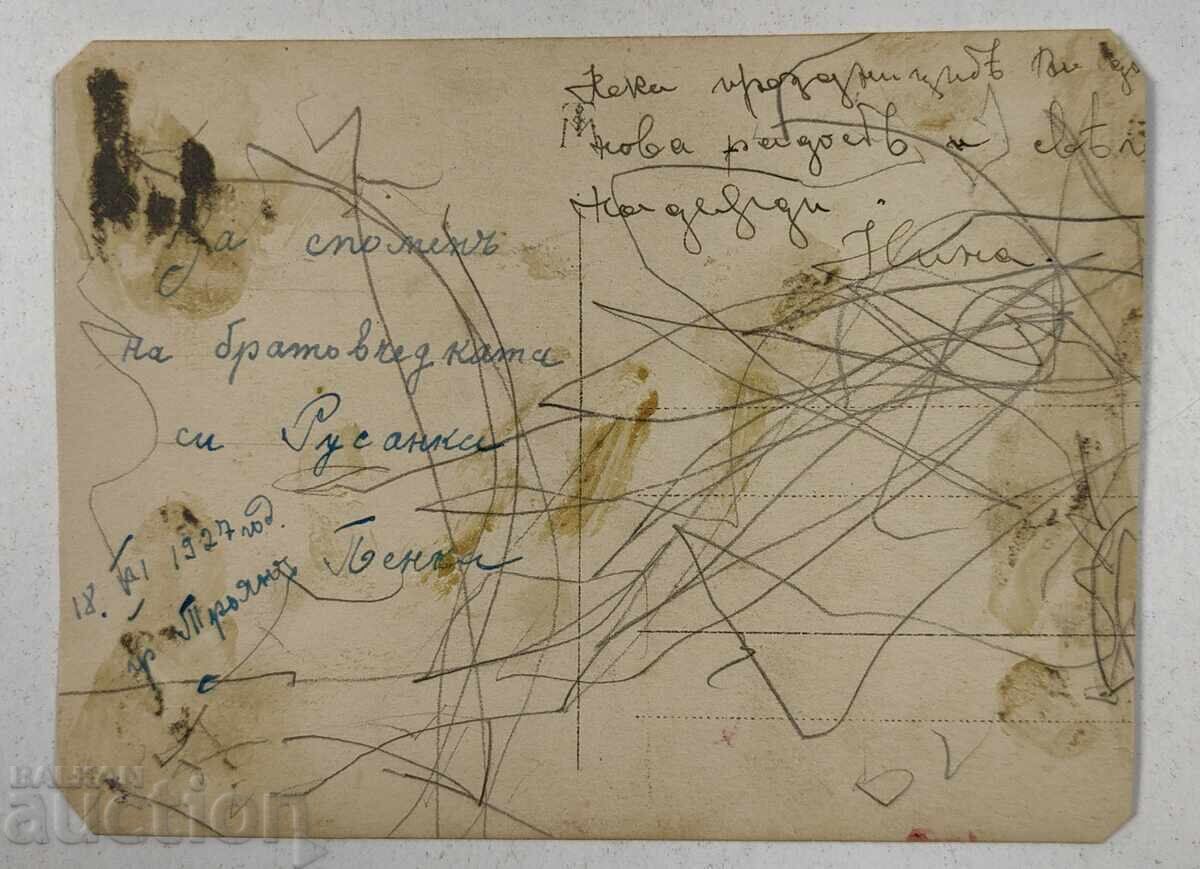 За споменъ
на братовчедката
си Русанка
Пенка
18. VI 1927 год.
гр. Троянъ
Нека праздницитѣ Ви до
нова радость и свѣт
надежди.
Нина.
BALKAN
auction